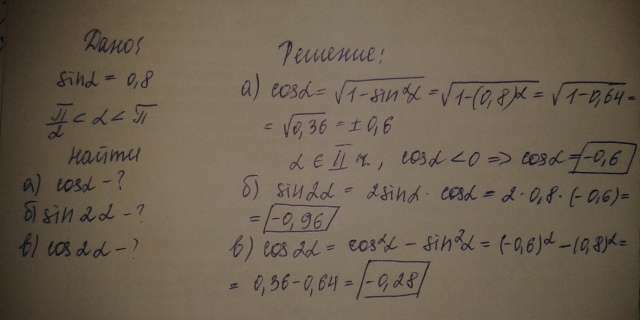 Дано:
sinα = 0,8
π/2 < α < π
Найти
а) cosα - ?
б) sin2α - ?
в) cos2α - ?
Решение:
а) cosα = √(1-sin²α) = √(1-(0,8)²) = √(1-0,64) =
= √0,36 = ±0,6
α ∈ II ч., cosα < 0 => cosα = -0,6
б) sin2α = 2sinα · cosα = 2 · 0,8 · (-0,6) =
= -0,96
в) cos2α = cos²α - sin²α = (-0,6)² - (0,8)² =
= 0,36-0,64 = -0,28